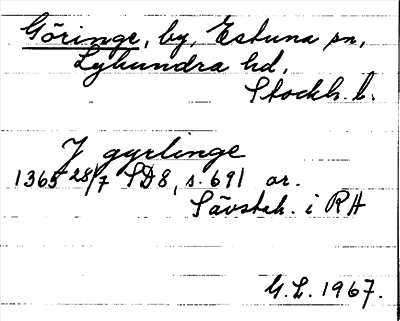 Göringe, by, Estuna sn,
Lyhundra hd,
Stockh. l.
J gyrlinge
1365 28/7 SD8, s. 691 or.
Sävstah. i RA
G.L. 1967.